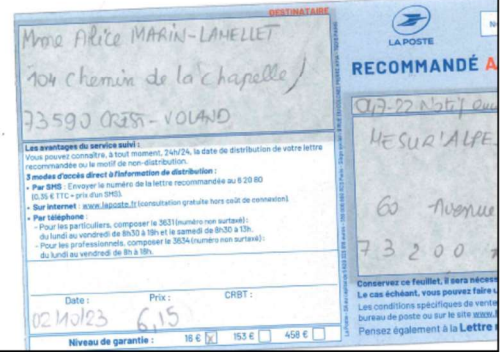 DESTINATAIRE
Mme Alice MARIN-LAMELLET
104 chemin de la chapelle
73590 CREST-VOLAND
Les avantages du service suivi :
Vous pouvez connaître, à tout moment, 24h/24, la date de distribution de votre lettre
recommandée ou le motif de non-distribution.
3 modes d'accès direct à l'information de distribution :
• Par SMS : Envoyer le numéro de la lettre recommandée au 6 20 80
(0,35 € TTC + prix d'un SMS).
• Sur internet : www.laposte.fr (consultation gratuite hors coût de connexion).
• Par téléphone :
- Pour les particuliers, composer le 3631 (numéro non surtaxé) :
du lundi au vendredi de 8h30 à 19h et le samedi de 8h30 à 13h.
- Pour les professionnels, composer le 3634 (numéro non surtaxé) :
du lundi au vendredi de 8h à 18h.
Date : Prix : CRBT :
02/10/23 6,15
Niveau de garantie : 16 € 153 € 458 €
LA POSTE
RECOMMANDÉ A
MESUR'ALPE
60 Avenue
73200
Conservez ce feuillet, il sera nécess
Le cas échéant, vous pouvez faire
Les conditions spécifiques de vente
bureau de poste ou sur le site www.
Pensez également à la Lettre